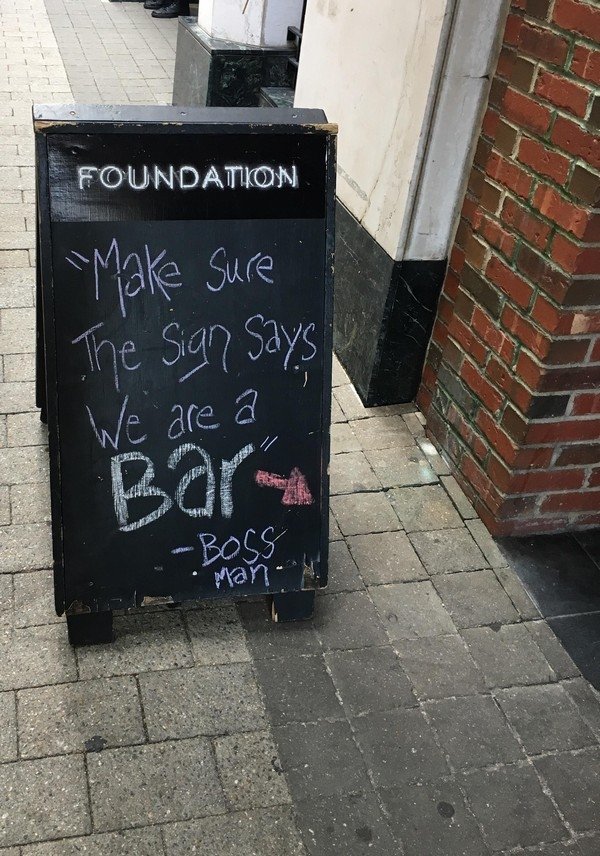 FOUNDATION
"Make Sure
The Sign Says
We are a
Bar"
- Boss
Man